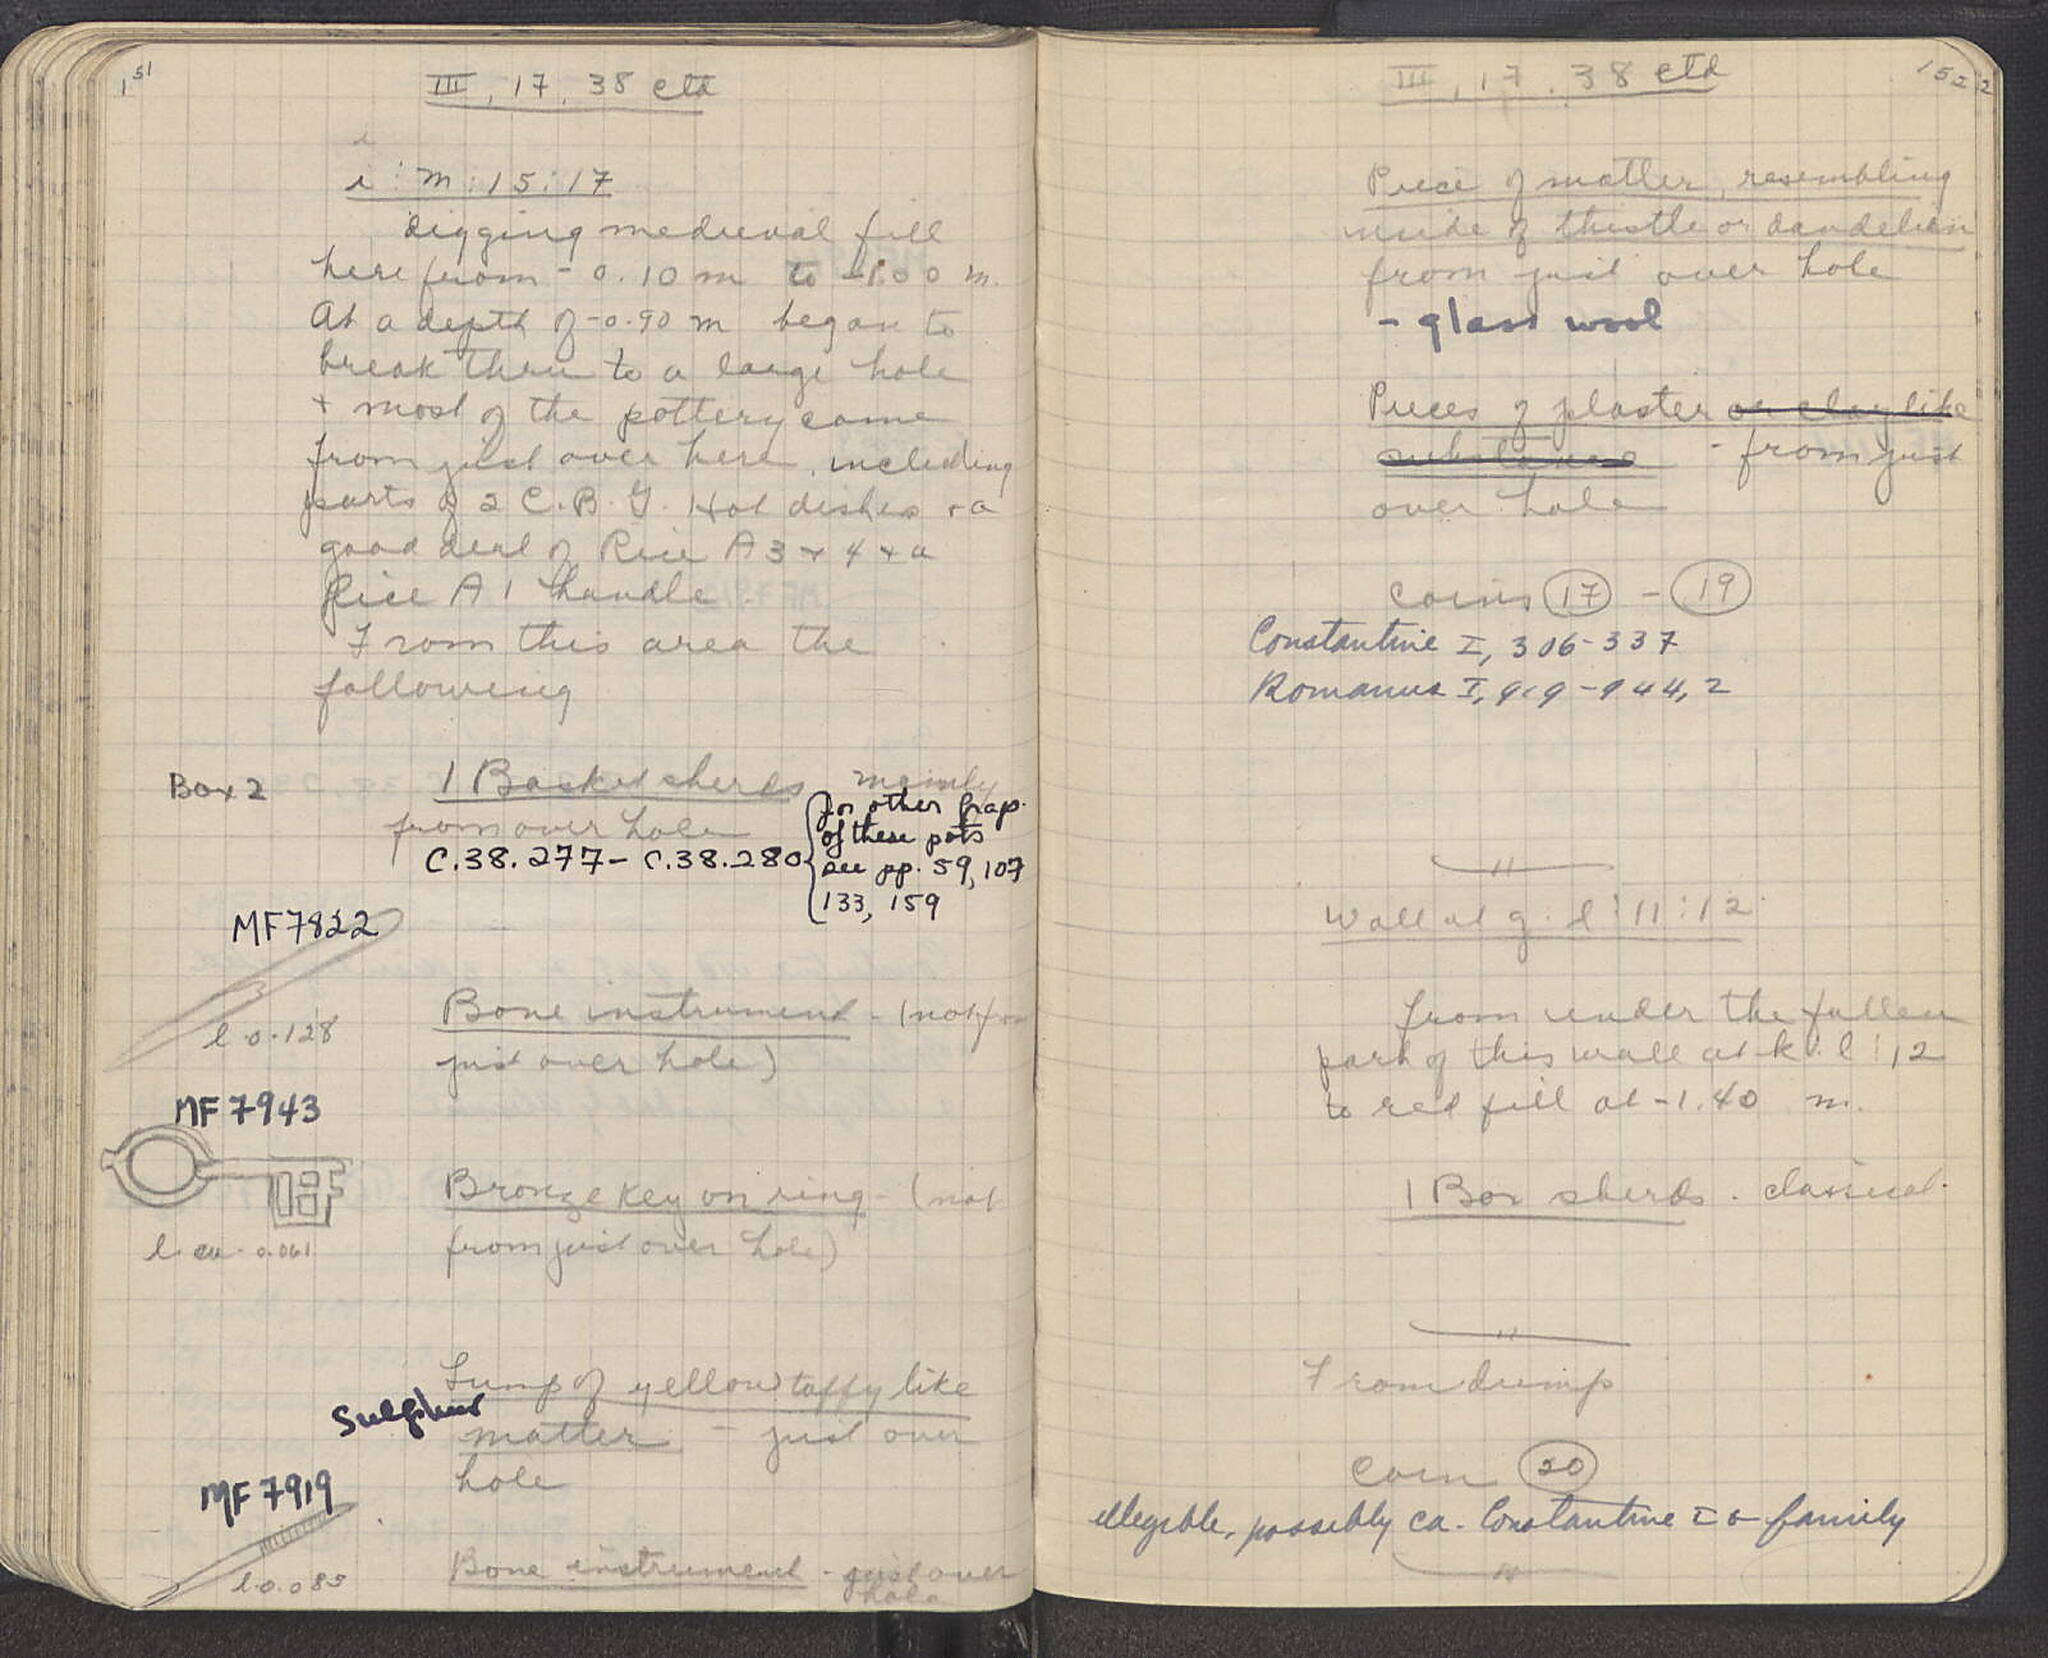 151
III, 17, 38 ctd
i : m : 15 : 17
digging medieval fill
here from - 0.10 m to -1.00 m.
At a depth of -0.90 m began to
break thru to a large hole
+ most of the pottery came
from just over here, including
parts of 2 C.B.G. Hot dishes + a
good deal of Rice A 3 + 4 + a
Rice A 1 handle.
From this area the
following
Box 2
1 Basket sherds mainly
from over hole
C.38.277 - C.38.280
for other frag.
of these pots
see pp. 59, 107
133, 159
MF7822
l 0.128
Bone instrument - (not from
just over hole)
MF 7943
l. ca. 0.061
Bronze key on ring - (not
from just over hole)
Lump of yellow taffy like
Sulphur
matter - just over
hole
MF 7919
l. 0.085
Bone instrument - just over
hole
152
III, 17, 38 ctd
Piece of matter, resembling
inside of thistle or dandelion
from just over hole
- glass wool
Pieces of plaster or clay like
substance - from just
over hole
Coins 17 - 19
Constantine I, 306-337
Romanus I, 919-944, 2
Wall at g : l : 11 : 12
From under the fallen
part of this wall at k : l : 12
to red fill at -1.40 m.
1 Box sherds. classical.
From dump
Coin 20
illegible, possibly ca. Constantine I or family